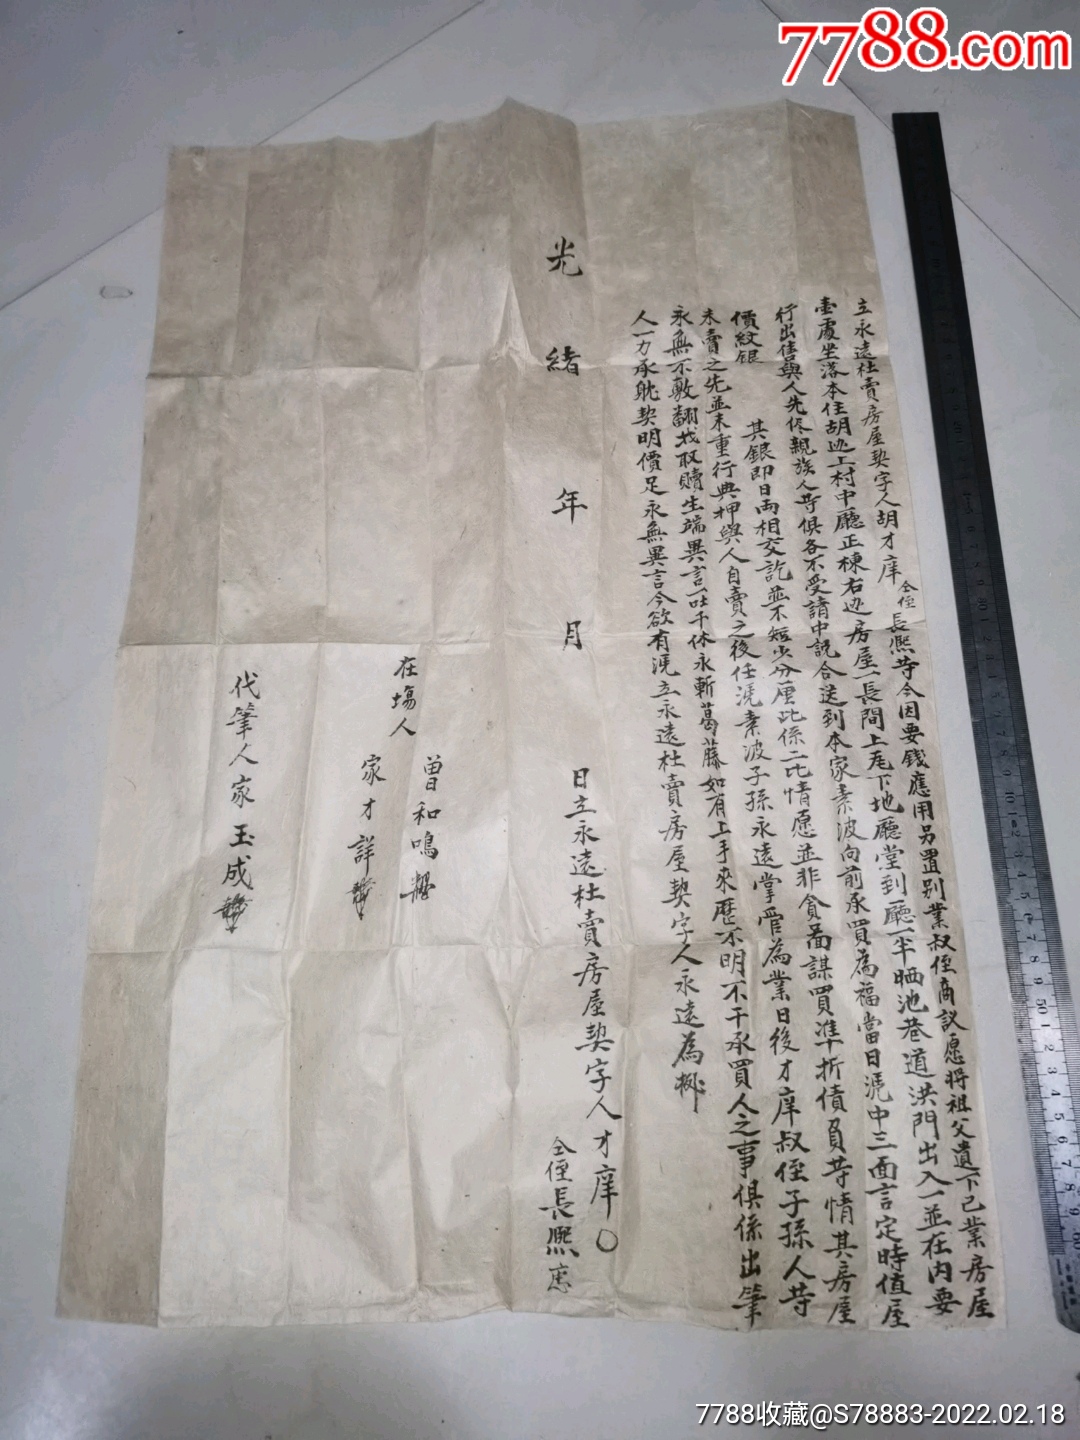 7788.com
立永遠杜賣房屋契字人胡才庠仝侄長熙等今因要錢應用另置别業叔侄商議愿將祖父遺下己業房屋
壹處坐落本住胡边上村中廳正棟右边房屋一長間上瓦下地廳堂到廳一半晒池巷道洪門出入一並在内要
行出售與人先侭親族人等俱各不受請中説合送到本家素波向前承買為福當日凴中三面言定時值屋
價紋銀 其銀即日両相交訖並不短少分厘此係二比情愿並非貪啚謀買準折債負等情其房屋
未賣之先並未重行典押與人自賣之後任凴素波子孫永遠掌管為業日後才庠叔侄子孫人等
永無不敷翻找取贖生端異言一吐千休永斬葛藤如有上手來歷不明不干承買人之事俱係出筆
人一力承躭契明價足永無異言今欲有凴立永遠杜賣房屋契字人永遠為㨿
光緒 年 月 日立永遠杜賣房屋契字人才庠〇
仝侄長熙
在塲人 曾和鳴
家才詳
代筆人家玉成
7788收藏@S78883-2022.02.18